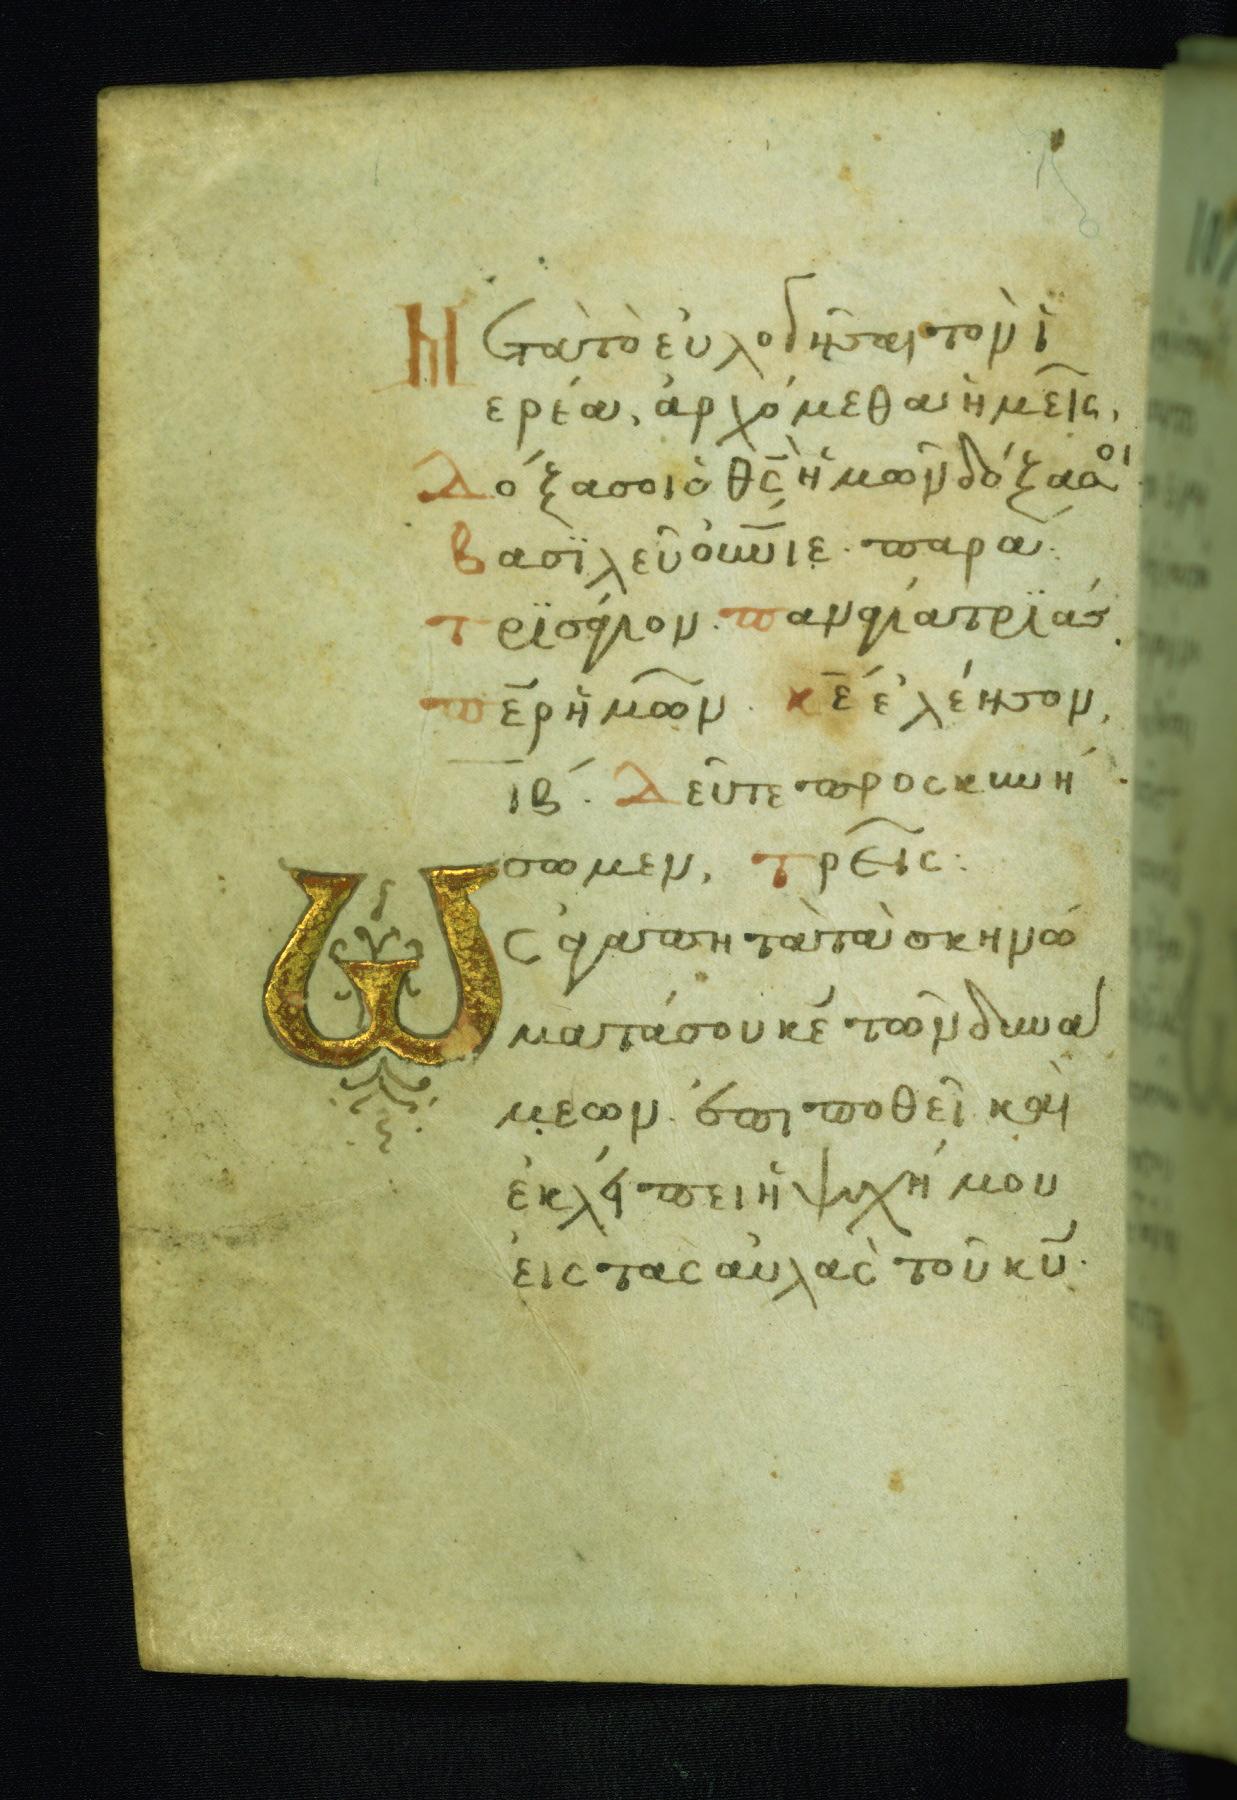 Μετὰ τὸ εὐλογῆσαι τὸν ἱ
ερέα, ἀρχόμεθα ἡμεῖς,
Δόξα σοι ὁ θ̅ς̅ ἡμῶν δόξα σοι
βασϊλεῦ οὐνιε. παρα.
τρϊσάγιον. παναγία τρϊάς.
π̅ε̅ρ ἡμῶν. κ̅ε̅ ἐλέησον,
ιβ΄. Δεῦτε προσκυνή
σωμεν, τρεῖς:
Ως ἀγαπητὰ τὰ σκηνώ
ματά σου κ̅ε̅ τῶν δυνά
μεων. ἐπιποθεῖ καὶ
ἐκλείπει ἡ ψυχή μου
εἰς τὰς αὐλὰς τοῦ κ̅υ̅.